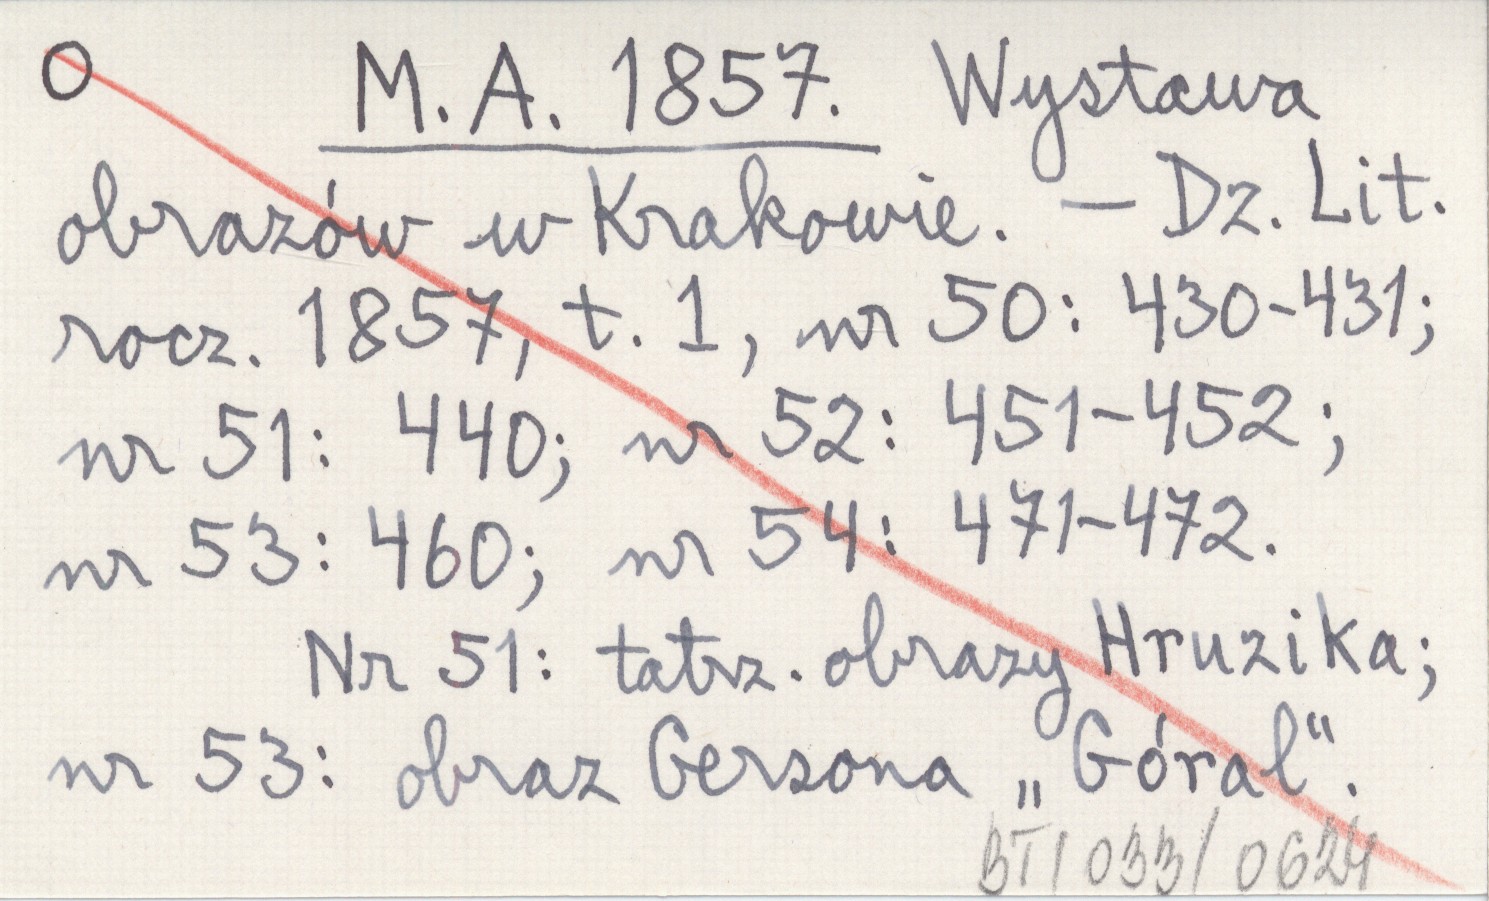 O M. A. 1857. Wystawa
obrazów w Krakowie. — Dz. Lit.
rocz. 1857, t. 1, nr 50: 430-431;
nr 51: 440; nr 52: 451-452;
nr 53: 460; nr 54: 471-472.
Nr 51: tatrz. obrazy Hruzika;
nr 53: obraz Gersona „Góral".
BT/033/0624